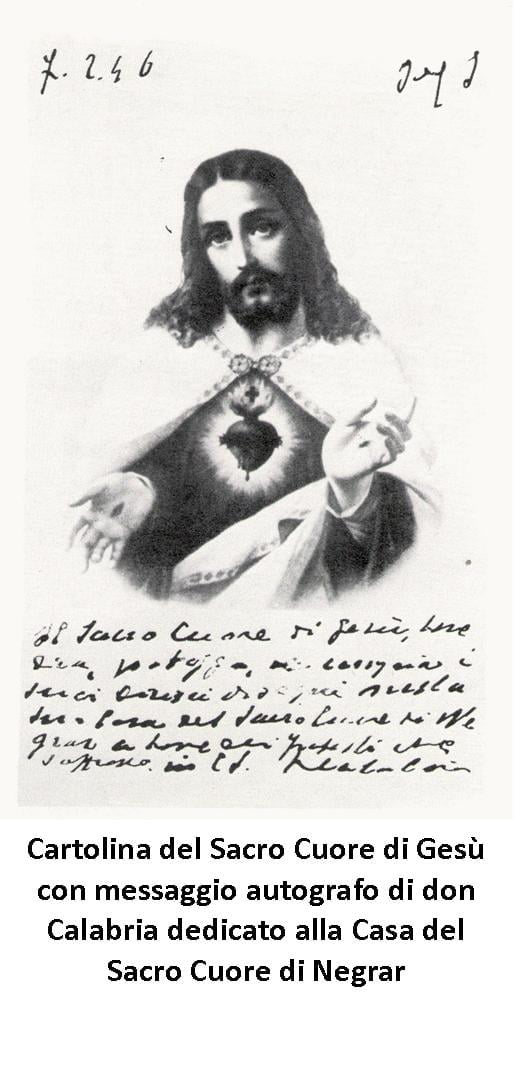 7. 2. 46
Il Sacro Cuore di Gesù, bene
dica, protegga, i
suoi divini disegni nella
sua Casa del Sacro Cuore di Ne
grar a bene dei fratelli che
soffrono. in
Cartolina del Sacro Cuore di Gesù
con messaggio autografo di don
Calabria dedicato alla Casa del
Sacro Cuore di Negrar